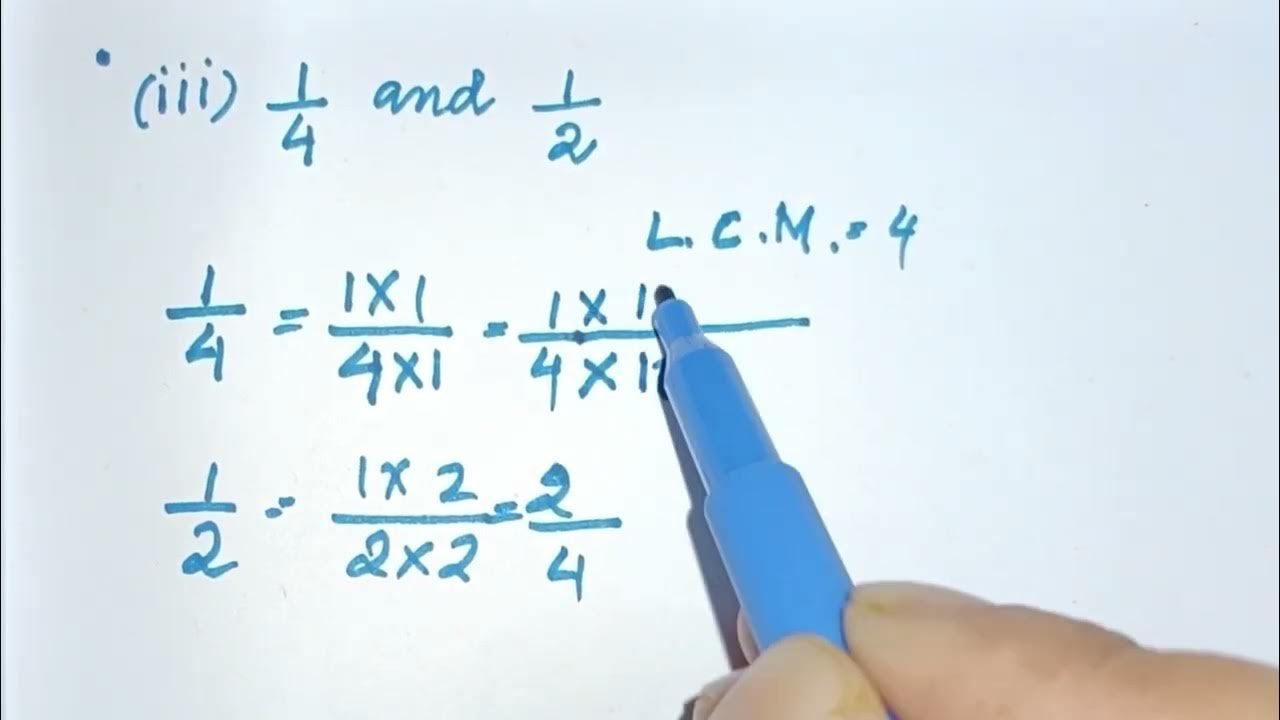 (iii) 1/4 and 1/2
L.C.M. = 4
1/4 = 1×1/4×1 = 1×1/4×1
1/2 = 1×2/2×2 = 2/4